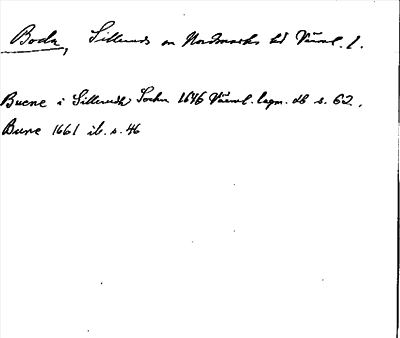 Boda, Silleruds sn Nordmarks hd Värml. l.
Buene i Sillerudz Sochn 1646 Värml. lagm. db s. 62.
Bune 1661 ib. s. 46